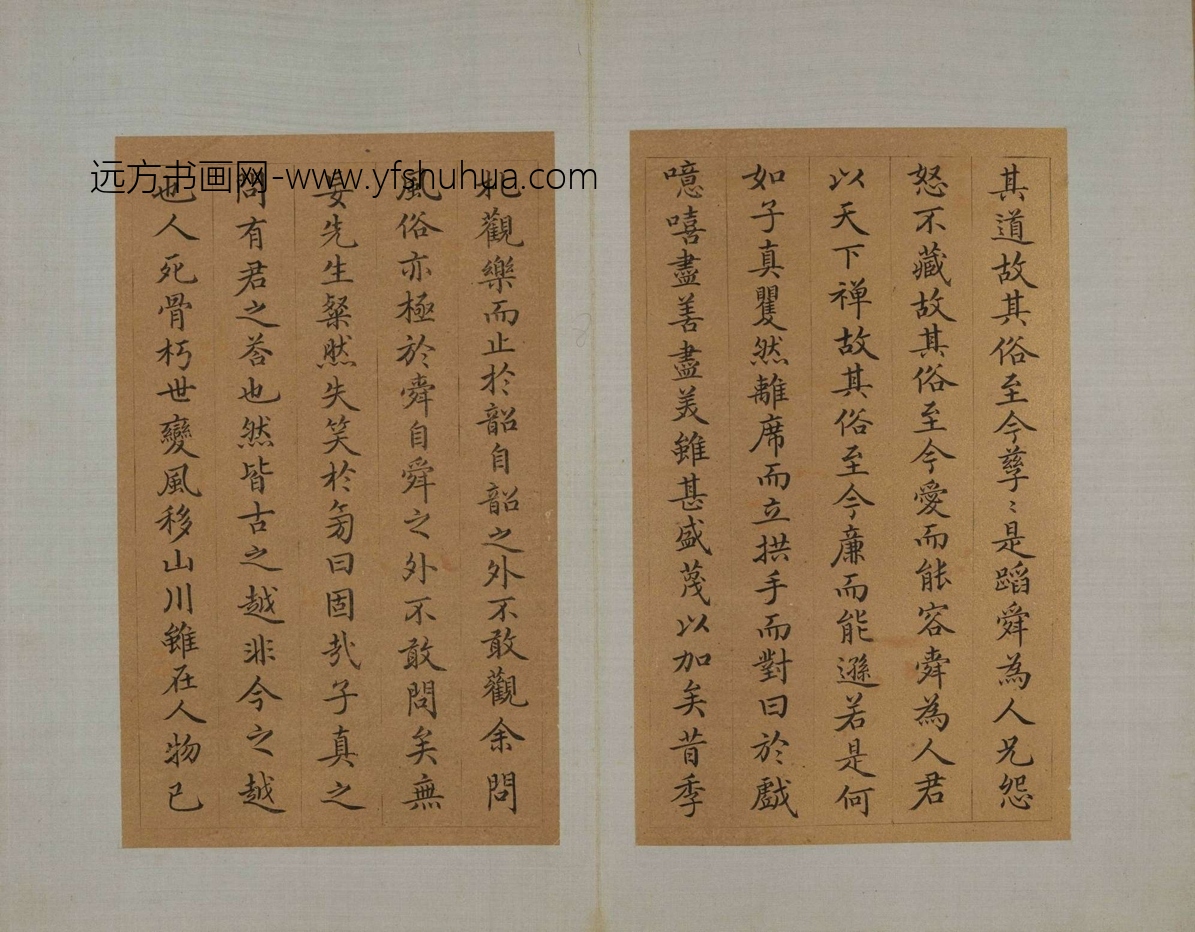 其道故其俗至今孳〻是蹈舜為人兄怨
怒不藏故其俗至今愛而能容舜為人君
以天下禅故其俗至今廉而能遜若是何
如子真矍然離席而立拱手而對曰於戲
噫嘻盡善盡美雖甚盛蔑以加矣昔季
札觀樂而止於韶自韶之外不敢觀余問
風俗亦極於舜自舜之外不敢問矣無
妄先生粲然失笑於旁曰固哉子真之
問有君之荅也然皆古之越非今之越
也人死骨朽世變風移山川雖在人物已
远方书画网-www.yfshuhua.com